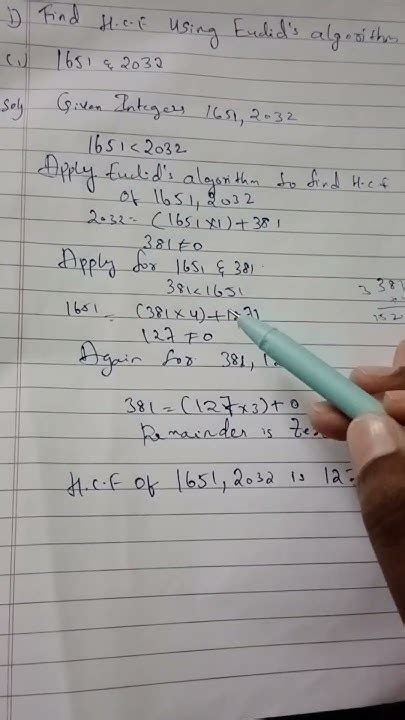 1) Find H.C.F Using Euclid's algorithm
(i) 1651 & 2032
Soly Given Integers 1651, 2032
1651 < 2032
Apply Euclid's algorithm to find H.C.F
of 1651, 2032
2032 = (1651 x 1) + 381
381 ≠ 0
Apply for 1651 & 381
381 < 1651
1651 = (381 x 4) +
127 ≠ 0
Again for 381,
381 = (127 x 3) + 0
Remainder is
H.C.F of 1651, 2032 is